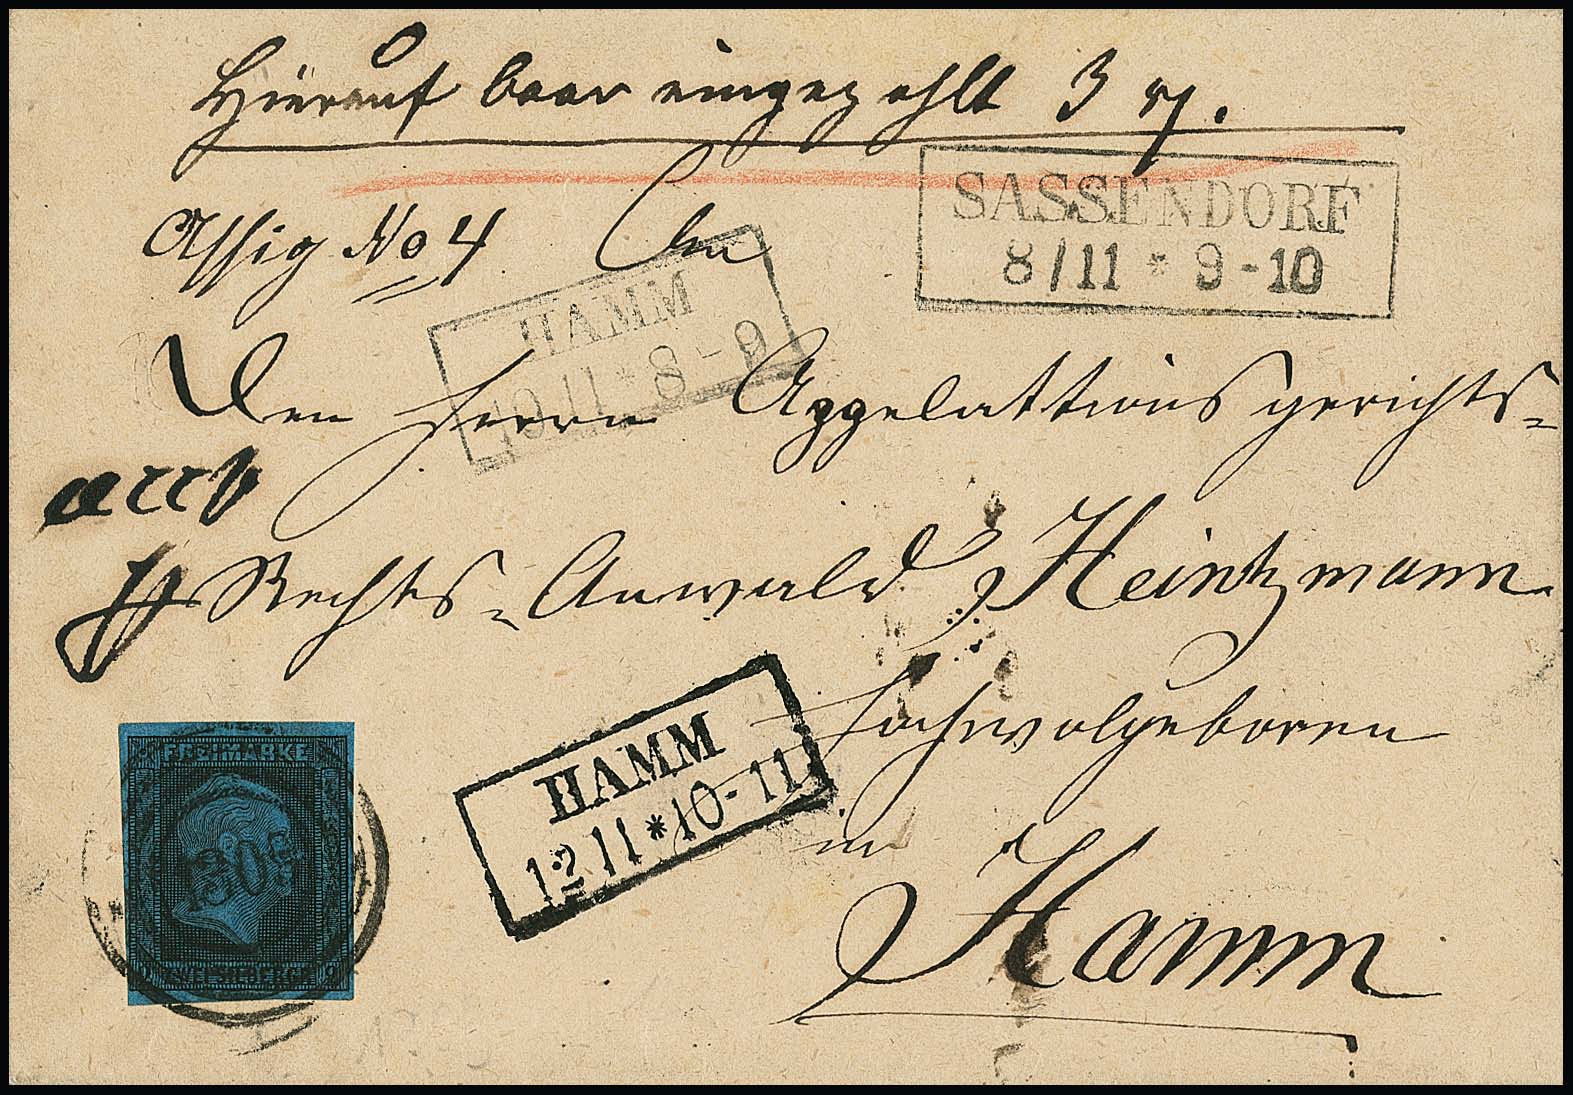 Hierauf baar eingezahlt 3
SASSENDORF
8/11 * 9-10
Assig No 4 An
HAMM
10 11 * 8-9
Den Herrn Appelattions gerichts-
Rechts-Anwald Heintzmann
Hochwolgeboren
HAMM
12 11 * 10-11
in
Hamm
FREIMARKE
ZWEI SILBERGR